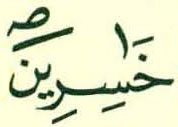 خَٰسِرِينَ ۖ